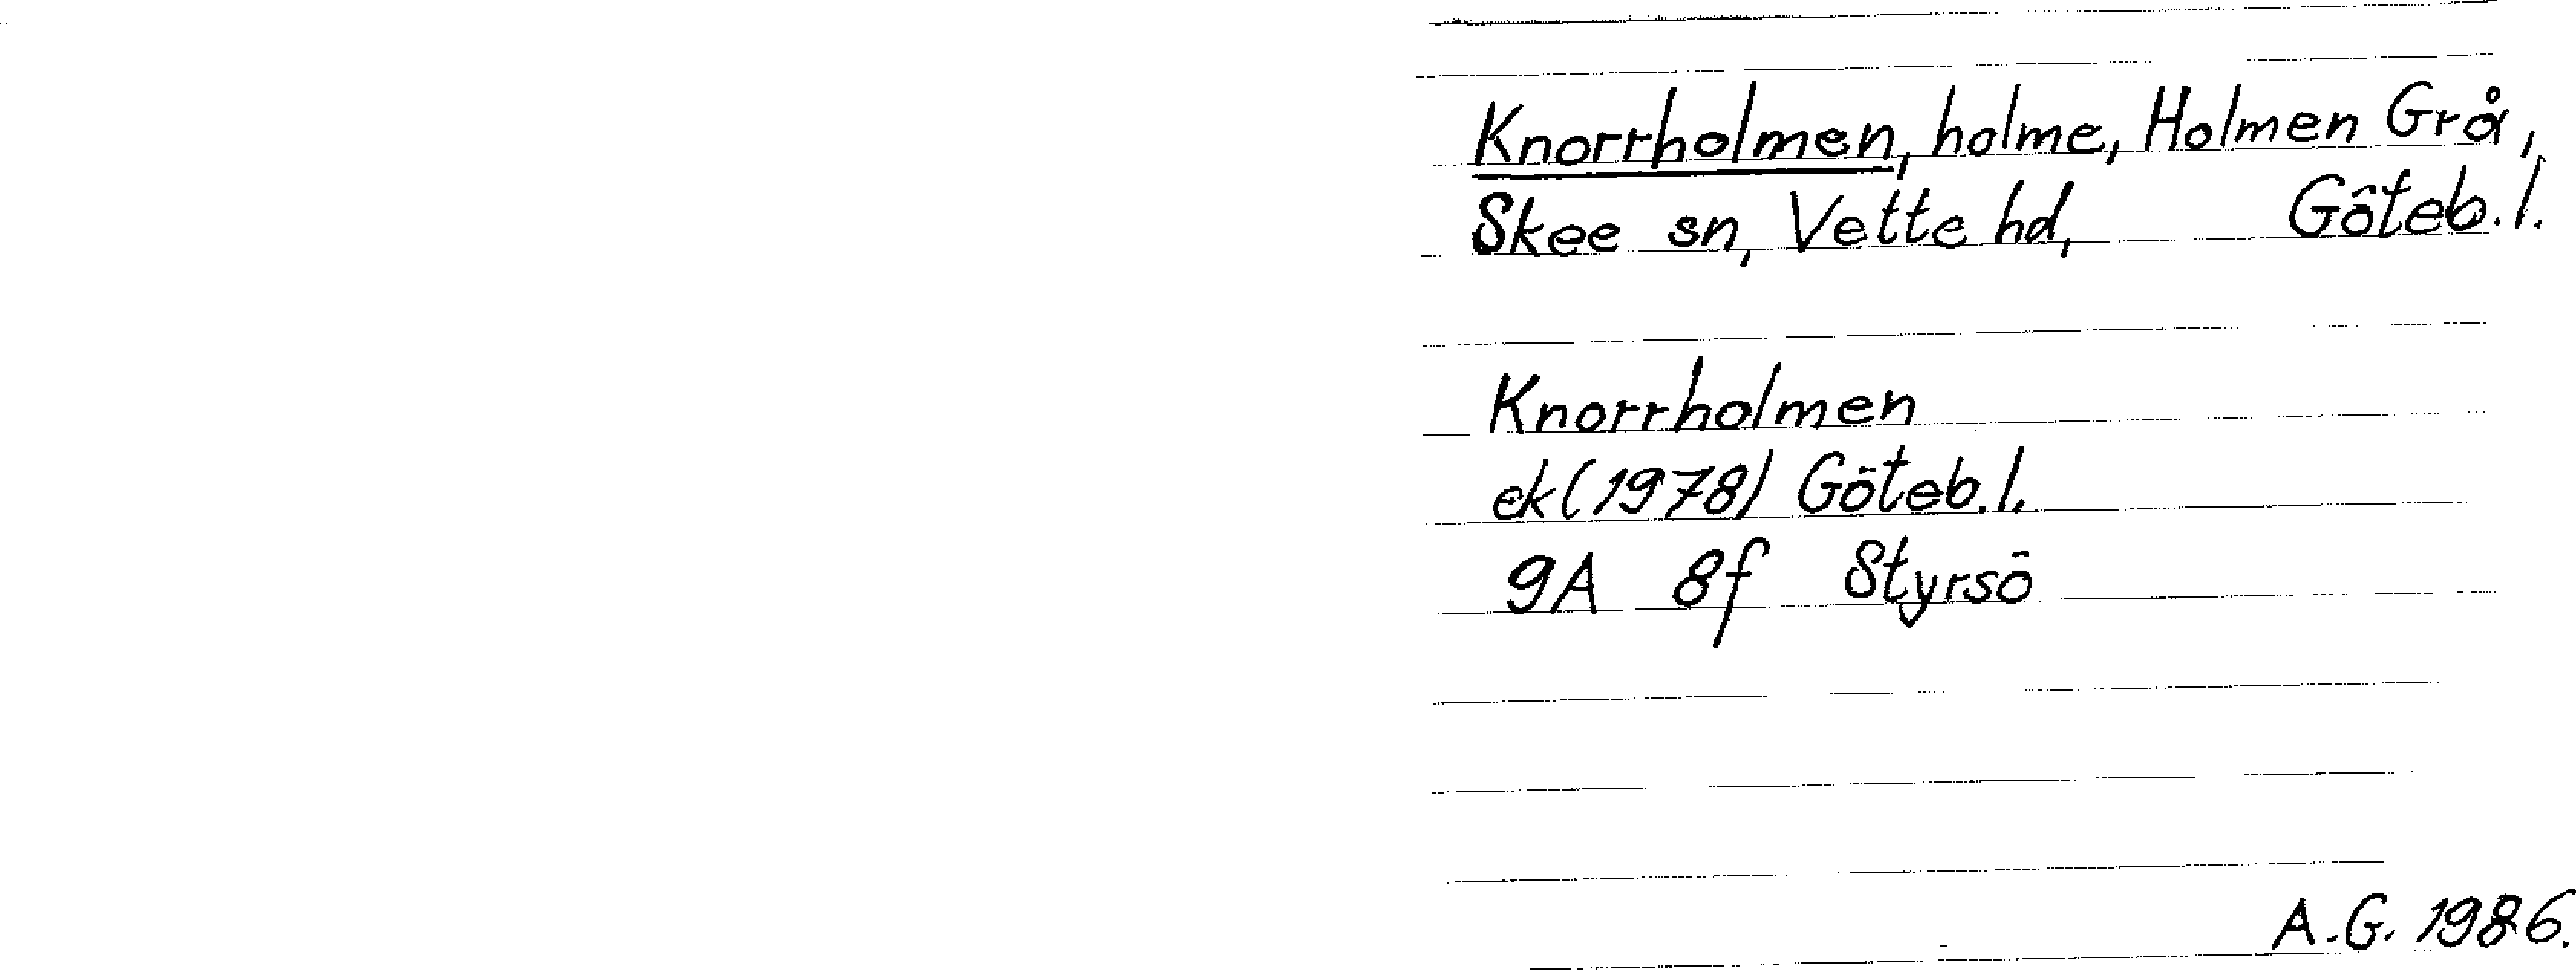 Knorrholmen, holme, Holmen Grå,
Skee sn, Vette hd, Göteb. l.
Knorrholmen
ek (1978) Göteb. l.
9A 8f Styrsö
A.G. 1986.